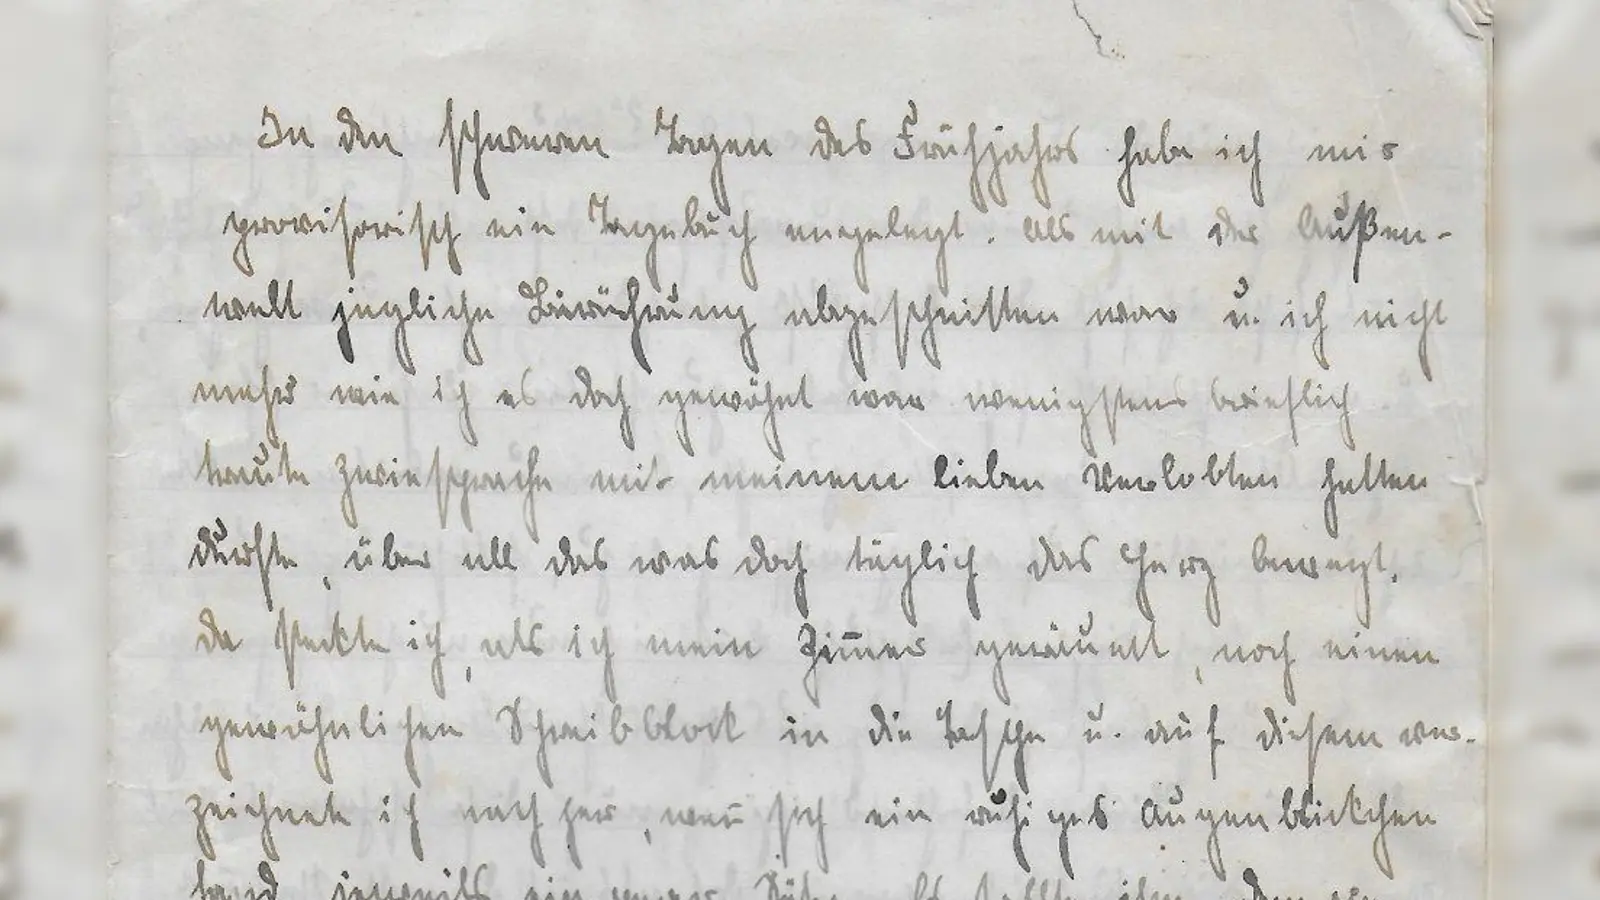 In den schweren Tagen des Frühjahrs habe ich mir
provisorisch ein Tagebuch angelegt. Als mit der Außen-
welt jegliche Berührung abgeschnitten war u. ich nicht
mehr wie ich es doch gewöhnt war wenigstens brieflich
traute Zwiesprache mit meinem lieben Verlobten halten
durfte, über all das was doch täglich das Herz bewegt,
da steckte ich, als ich mein Zim̅er geräumt, noch einen
gewöhnlichen Schreibblock in die Tasche u. auf diesem ver-
zeichnete ich nachher, wen̅ sich ein ruhiges Augenblickchen
fand, jeweils ein paar